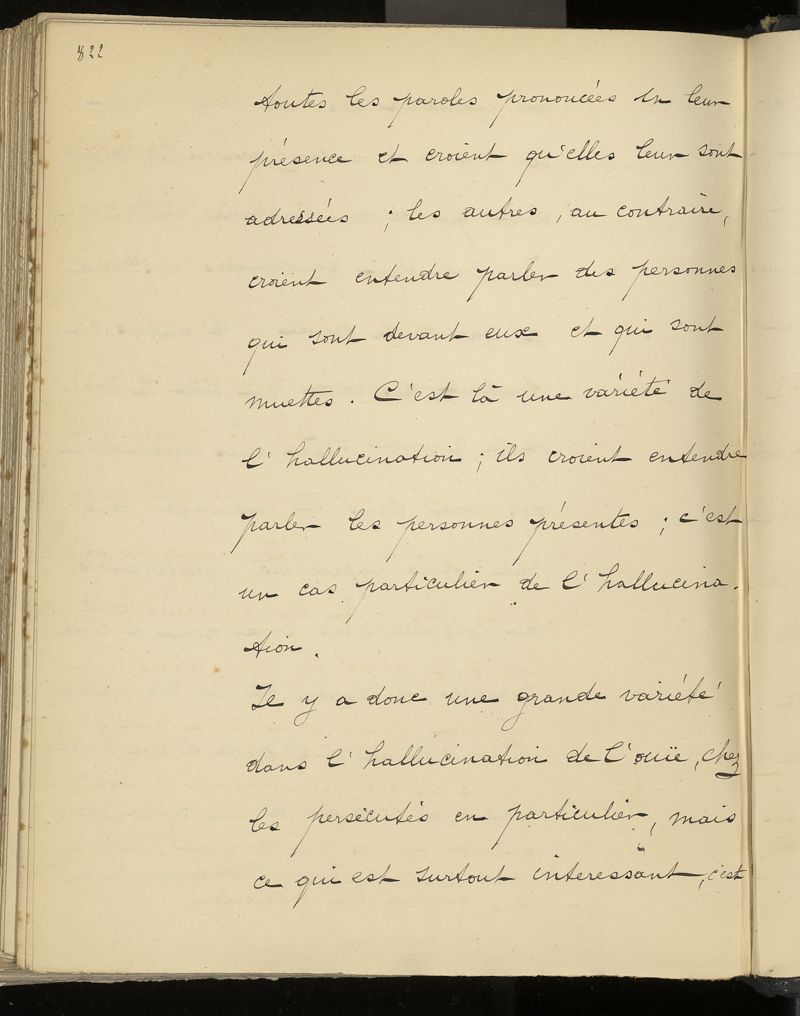 822
toutes les paroles prononcées en leur
présence et croient qu'elles leur sont
adressées ; les autres, au contraire,
croient entendre parler des personnes
qui sont devant eux et qui sont
muettes. C'est là une variété de
l'hallucination ; ils croient entendre
parler les personnes présentes ; c'est
un cas particulier de l'hallucina-
tion.
Il y a donc une grande variété
dans l'hallucination de l'ouïe, chez
les persécutés en particulier, mais
ce qui est surtout interessant, c'est